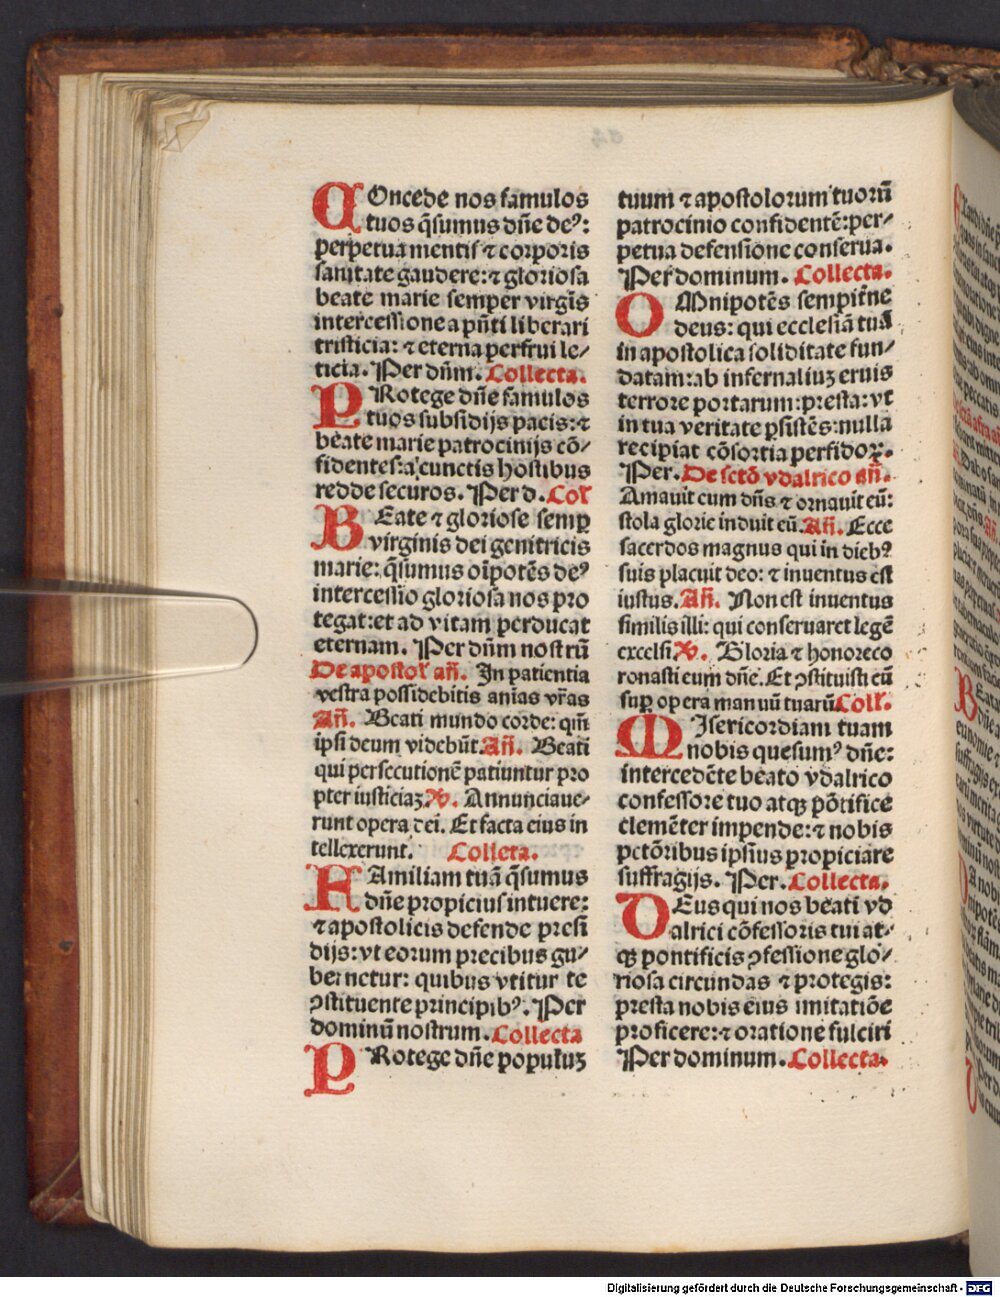 COncede nos famulos
tuos q̃sumus dñe deꝰ:
perpetua mentis ⁊ corporis
sanitate gaudere: ⁊ gloriosa
beate marie semper virgĩs
intercessione a pñti liberari
tristicia: ⁊ eterna perfrui le/
ticia. Per dñm. Collecta.
PRotege dñe famulos
tuos subsidijs pacis: ⁊
beate marie patrocinijs cõ/
fidentes: a cunctis hostibus
redde securos. Per d. Coł
BEate ⁊ gloriose semꝑ
virginis dei genitricis
marie: q̃sumus oĩpotẽs deꝰ
intercessio gloriosa nos pro
tegat: et ad vitam perducat
eternam. Per dñm nostrũ
De apostoł añ. In patientia
vestra possidebitis anĩas vr̃as
Añ. Beati mundo corde: qm̃
ipsi deum videbũt. Añ. Beati
qui persecutionẽ patiuntur pro
pter iusticiaꝫ ℣. Annunciaue/
runt opera dei. Et facta eius in
tellexerunt. Colleta.
FAmiliam tuã q̃sumus
dñe propicius intuere:
⁊ apostolicis defende presi
dijs: vt eorum precibus gu/
bernetur: quibus vtitur te
ꝯstituente principibꝰ. Per
dominũ nostrum. Collecta
PRotege dñe populuꝫ
tuum ⁊ apostolorum tuorũ
patrocinio confidentẽ: per/
petua defensione conserua.
Per dominum. Collecta.
OMnipotẽs sempitẽne
deus: qui ecclesiã tuã
in apostolica soliditate fun/
datam: ab infernaliuꝫ eruis
terrore portarum: presta: vt
in tua veritate ꝑsistẽs: nulla
recipiat cõsortia perfidoꝝ.
Per. De sctõ vdalrico añ.
Amauit eum dñs ⁊ ornauit eũ:
stola glorie induit eũ. Añ. Ecce
sacerdos magnus qui in diebꝰ
suis placuit deo: ⁊ inuentus est
iustus. Añ. Non est inuentus
similis illi: qui conseruaret legẽ
excelsi ℣. Gloria ⁊ honore co
ronasti eum dñe. Et ꝯstituisti eũ
suꝑ opera manuũ tuarũ Coll'.
MIsericordiam tuam
nobis quesumꝰ dñe:
intercedẽte beato vdalrico
confessore tuo atqꝫ põtifice
clemẽter impende: ⁊ nobis
pctõribus ipsius propiciare
suffragijs. Per. Collecta.
DEus qui nos beati vd
alrici cõfessoris tui at/
qꝫ pontificis ꝯfessione glo/
riosa circundas ⁊ protegis:
presta nobis eius imitatiõe
proficere: ⁊ oratione fulciri
Per dominum. Collecta.
Digitalisierung gefördert durch die Deutsche Forschungsgemeinschaft - DFG